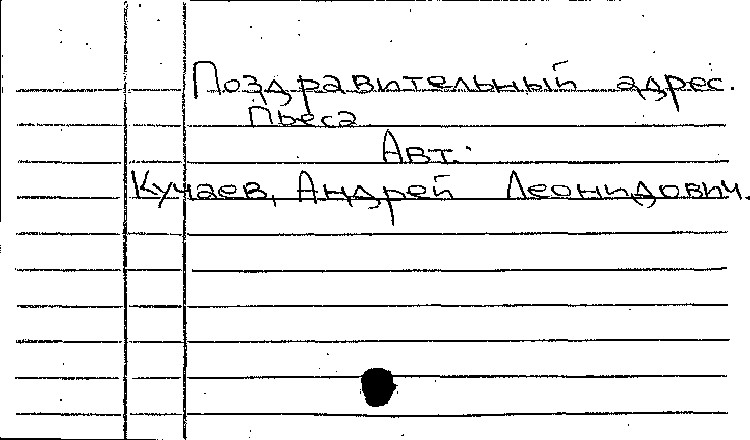 Поздравительный адрес.
Пьеса
Авт.:
Кучаев, Андрей Леонидович.